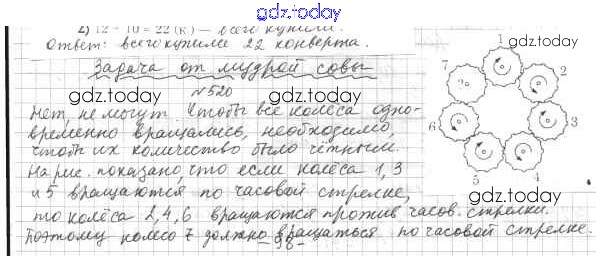 gdz.today
2) 12 + 10 = 22 (к) – всего купили
Ответ: всего купили 22 конверта.
Задача от мудрой совы
gdz.today
gdz.today
№520
Нет, не могут. Чтобы все колёса одно-
временно вращались, необходимо,
чтобы их количество было чётным.
На рис. показано, что если колёса 1, 3
и 5 вращаются по часовой стрелке,
то колёса 2,4,6 вращаются против часов. стрелки.
Поэтому колесо 7 должно вращаться по часовой стрелке.
– 98 –
1
7
2
6
3
5
4
gdz.today
gdz.today
gdz.today